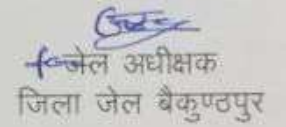 जेल अधीक्षक
जिला जेल बैकुण्ठपुर